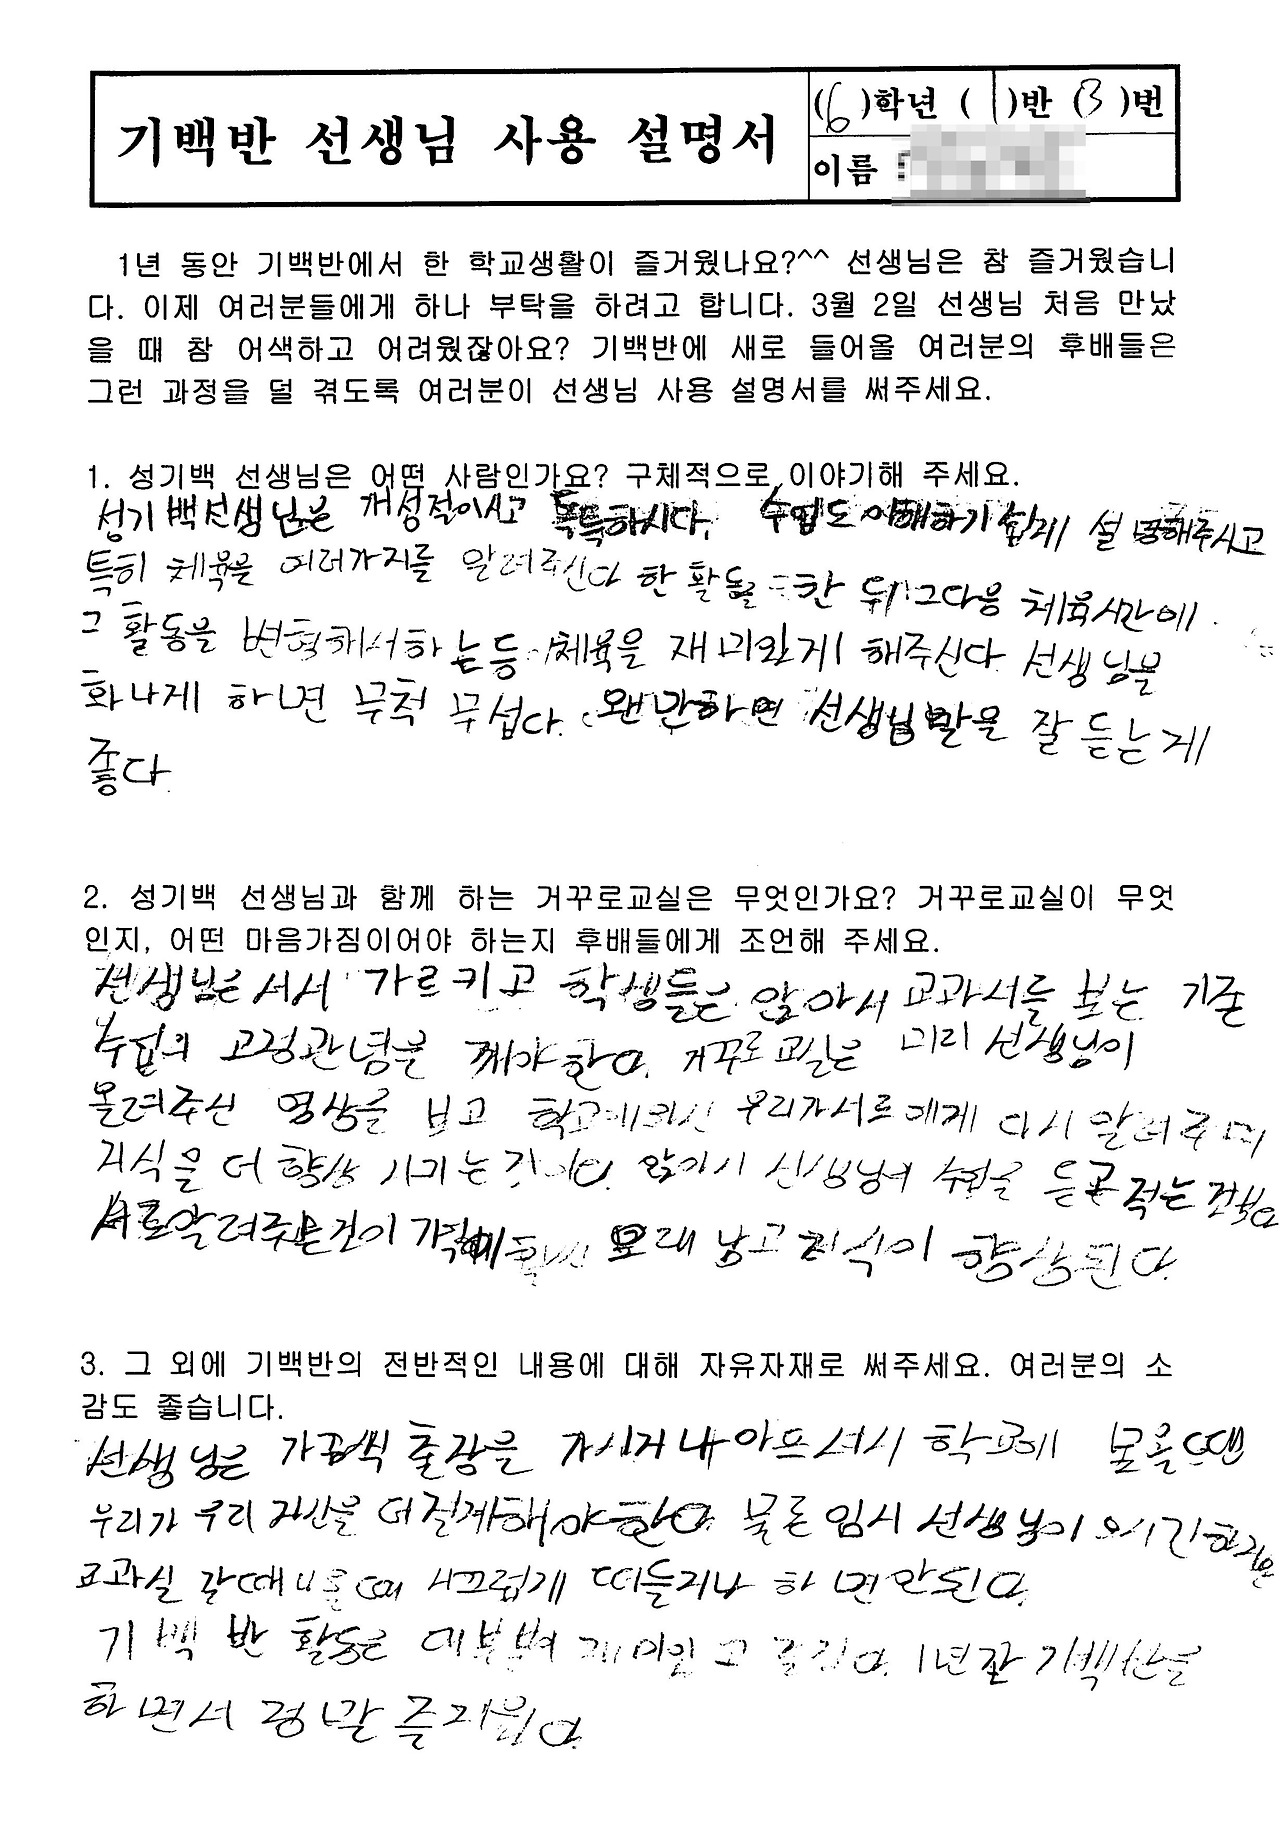 기백반 선생님 사용 설명서
(6)학년 (1)반 (3)번
이름
1년 동안 기백반에서 한 학교생활이 즐거웠나요?^^ 선생님은 참 즐거웠습니
다. 이제 여러분들에게 하나 부탁을 하려고 합니다. 3월 2일 선생님 처음 만났
을 때 참 어색하고 어려웠잖아요? 기백반에 새로 들어올 여러분의 후배들은
그런 과정을 덜 겪도록 여러분이 선생님 사용 설명서를 써주세요.
1. 성기백 선생님은 어떤 사람인가요? 구체적으로 이야기해 주세요.
성기백선생님은 개성적이시고 독특하시다. 수업도 이해하기 쉽게 설명해주시고
특히 체육을 여러가지를 알려주신다 한 활동을 한 뒤 그다음 체육시간에
그 활동을 변형해서하는등 체육을 재미있게 해주신다 선생님을
화나게 하면 무척 무섭다. 왠만하면 선생님말을 잘 듣는게
좋다.
2. 성기백 선생님과 함께 하는 거꾸로교실은 무엇인가요? 거꾸로교실이 무엇
인지, 어떤 마음가짐이어야 하는지 후배들에게 조언해 주세요.
선생님은 서서 가르키고 학생들은 앉아서 교과서를 보는 기존
수업의 고정관념을 깨야한다. 거꾸로교실은 미리 선생님이
올려주신 영상을 보고 학교에 우리가서로에게 다시 알려주며
지식을 더 향상 시키는것이다. 앉아서 선생님의 수업을 듣고 적는것보다
서로알려주는것이 기억에 훨씬 오래 남고 지식이 향상된다.
3. 그 외에 기백반의 전반적인 내용에 대해 자유자재로 써주세요. 여러분의 소
감도 좋습니다.
선생님은 가끔씩 출장을 가시거나 아프셔서 학교에 못올땐
우리가 우리 자신을 더 절제해야한다. 물론 임시 선생님이 오시긴하지만
교과실 갈때나 올때 시끄럽게 떠들거나 하면안된다.
기백반 활동은 대부분이 재미있고 즐겁다. 1년간 기백반을
하면서 정말 즐거웠다.